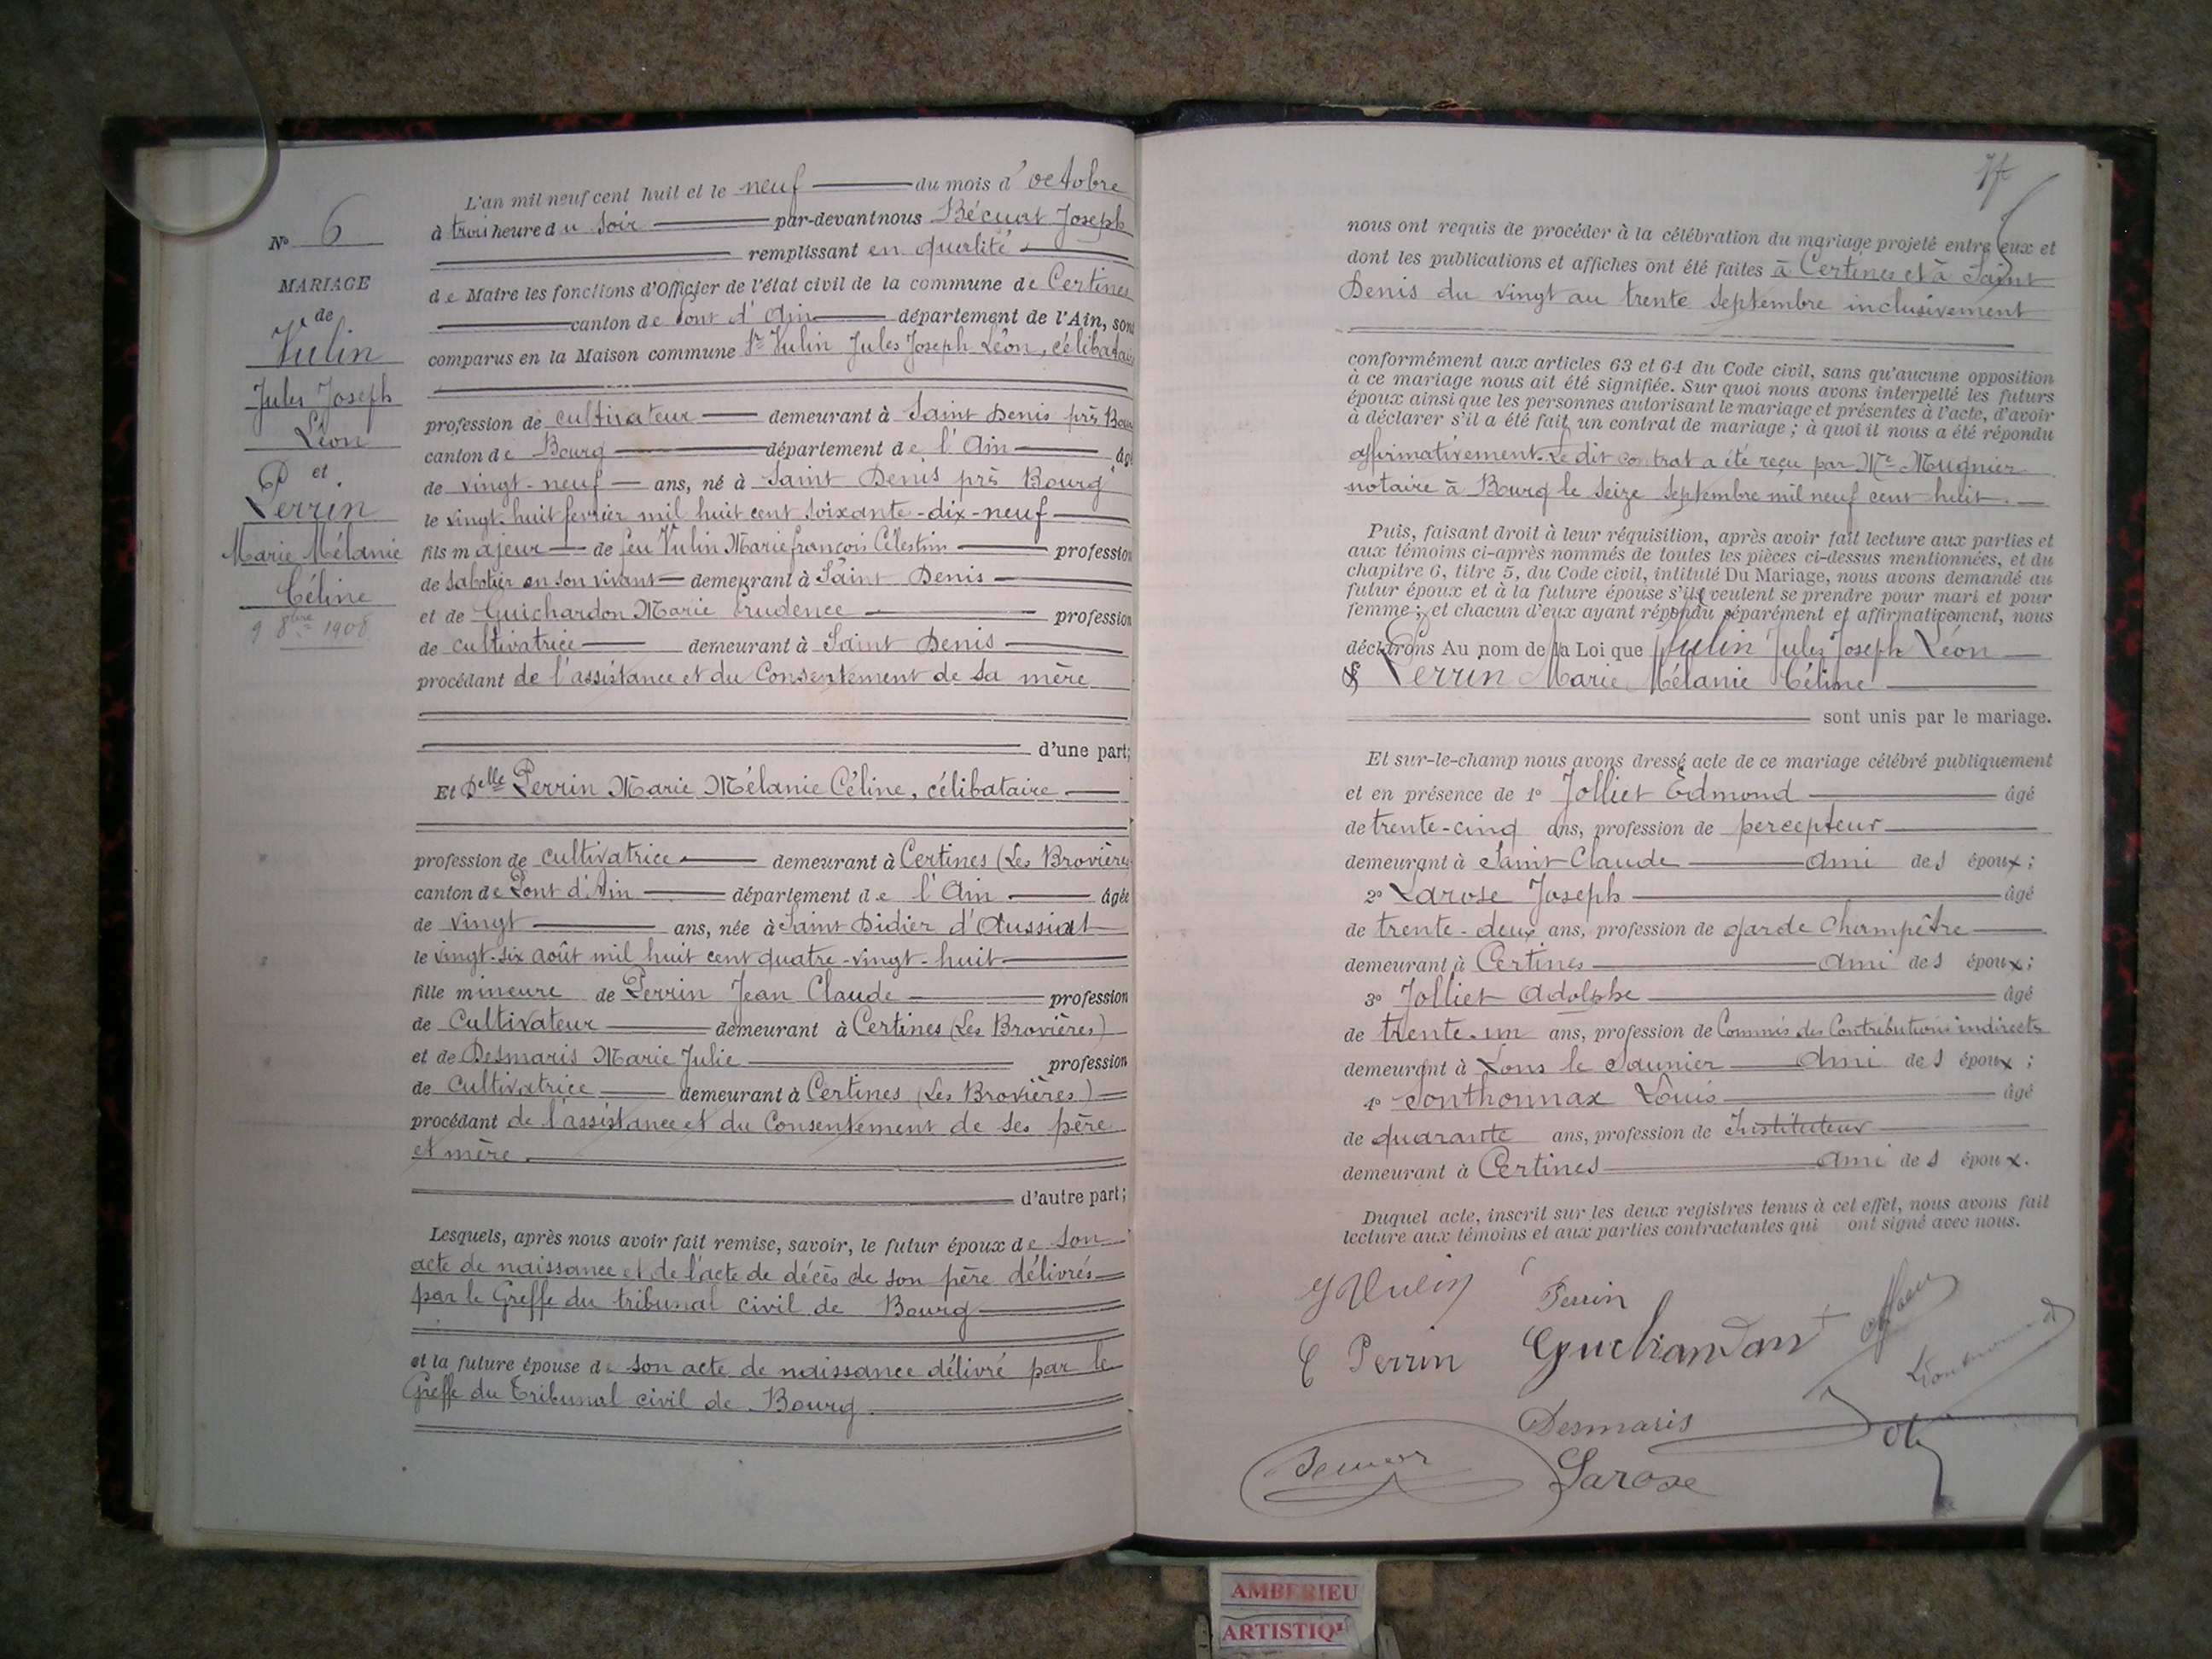 N° 6
MARIAGE
de
Vulin
Jules Joseph
Léon
et
Perrin
Marie Mélanie
Céline
9 8bre 1908
L'an mil neuf cent huit et le neuf du mois d'octobre
à trois heure du soir par-devant nous Bécuat Joseph
remplissant en qualité
de Maire les fonctions d'Officier de l'état civil de la commune de Certines
canton de Pont d'Ain département de l'Ain, sont
comparus en la Maison commune Sr Vulin Jules Joseph Léon, célibataire
profession de cultivateur demeurant à Saint Denis près Bourg
canton de Bourg département de l'Ain âgé
de vingt-neuf ans, né à Saint Denis près Bourg
le vingt-huit février mil huit cent soixante-dix-neuf
fils majeur de feu Vulin Marie françois Célestin profession
de Sabotier en son vivant demeurant à Saint Denis
et de Guichardon Marie Prudence profession
de cultivatrice demeurant à Saint Denis
procédant de l'assistance et du Consentement de sa mère
d'une part;
Et Delle Perrin Marie Mélanie Céline, célibataire
profession de cultivatrice demeurant à Certines (Les Brovières
canton de Pont d'Ain département de l'Ain âgée
de vingt ans, née à Saint Didier d'Aussiat
le vingt-six août mil huit cent quatre-vingt-huit
fille mineure de Perrin Jean Claude profession
de Cultivateur demeurant à Certines (Les Brovières)
et de Desmaris Marie Julie profession
de Cultivatrice demeurant à Certines (Les Brovières)
procédant de l'assistance et du Consentement de ses père
et mère
d'autre part;
Lesquels, après nous avoir fait remise, savoir, le futur époux de son
acte de naissance et de l'acte de décès de son père délivrés
par le Greffe du tribunal civil de Bourg
et la future épouse de son acte de naissance délivré par le
Greffe du Tribunal civil de Bourg
nous ont requis de procéder à la célébration du mariage projeté entre eux et
dont les publications et affiches ont été faites à Certines et à Saint
Denis du vingt au trente Septembre inclusivement
conformément aux articles 63 et 64 du Code civil, sans qu'aucune opposition
à ce mariage nous ait été signifiée. Sur quoi nous avons interpellé les futurs
époux ainsi que les personnes autorisant le mariage et présentes à l'acte, d'avoir
à déclarer s'il a été fait un contrat de mariage; à quoi il nous a été répondu
affirmativement. Le dit contrat a été reçu par Me Mugnier
notaire à Bourg le Seize Septembre mil neuf cent huit.
Puis, faisant droit à leur réquisition, après avoir fait lecture aux parties et
aux témoins ci-après nommés de toutes les pièces ci-dessus mentionnées, et du
chapitre 6, titre 5, du Code civil, intitulé Du Mariage, nous avons demandé au
futur époux et à la future épouse s'ils veulent se prendre pour mari et pour
femme; et chacun d'eux ayant répondu séparément et affirmativement, nous
déclarons Au nom de la Loi que Vulin Jules Joseph Léon
& Perrin Marie Mélanie Céline
sont unis par le mariage.
Et sur-le-champ nous avons dressé acte de ce mariage célébré publiquement
et en présence de 1° Jolliet Edmond âgé
de trente-cinq ans, profession de percepteur
demeurant à Saint-Claude ami des époux;
2° Larose Joseph âgé
de trente-deux ans, profession de garde Champêtre
demeurant à Certines ami des époux;
3° Jolliet Adolphe âgé
de trente-un ans, profession de Commis des Contributions indirects
demeurant à Lons le Saunier ami des époux;
4° Ponthonnax Louis âgé
de quarante ans, profession de Instituteur
demeurant à Certines ami des époux.
Duquel acte, inscrit sur les deux registres tenus à cet effet, nous avons fait
lecture aux témoins et aux parties contractantes qui ont signé avec nous.
J Vulin Perrin
C Perrin Guichardon
Desmaris
Larose
AMBERIEU
ARTISTIQ